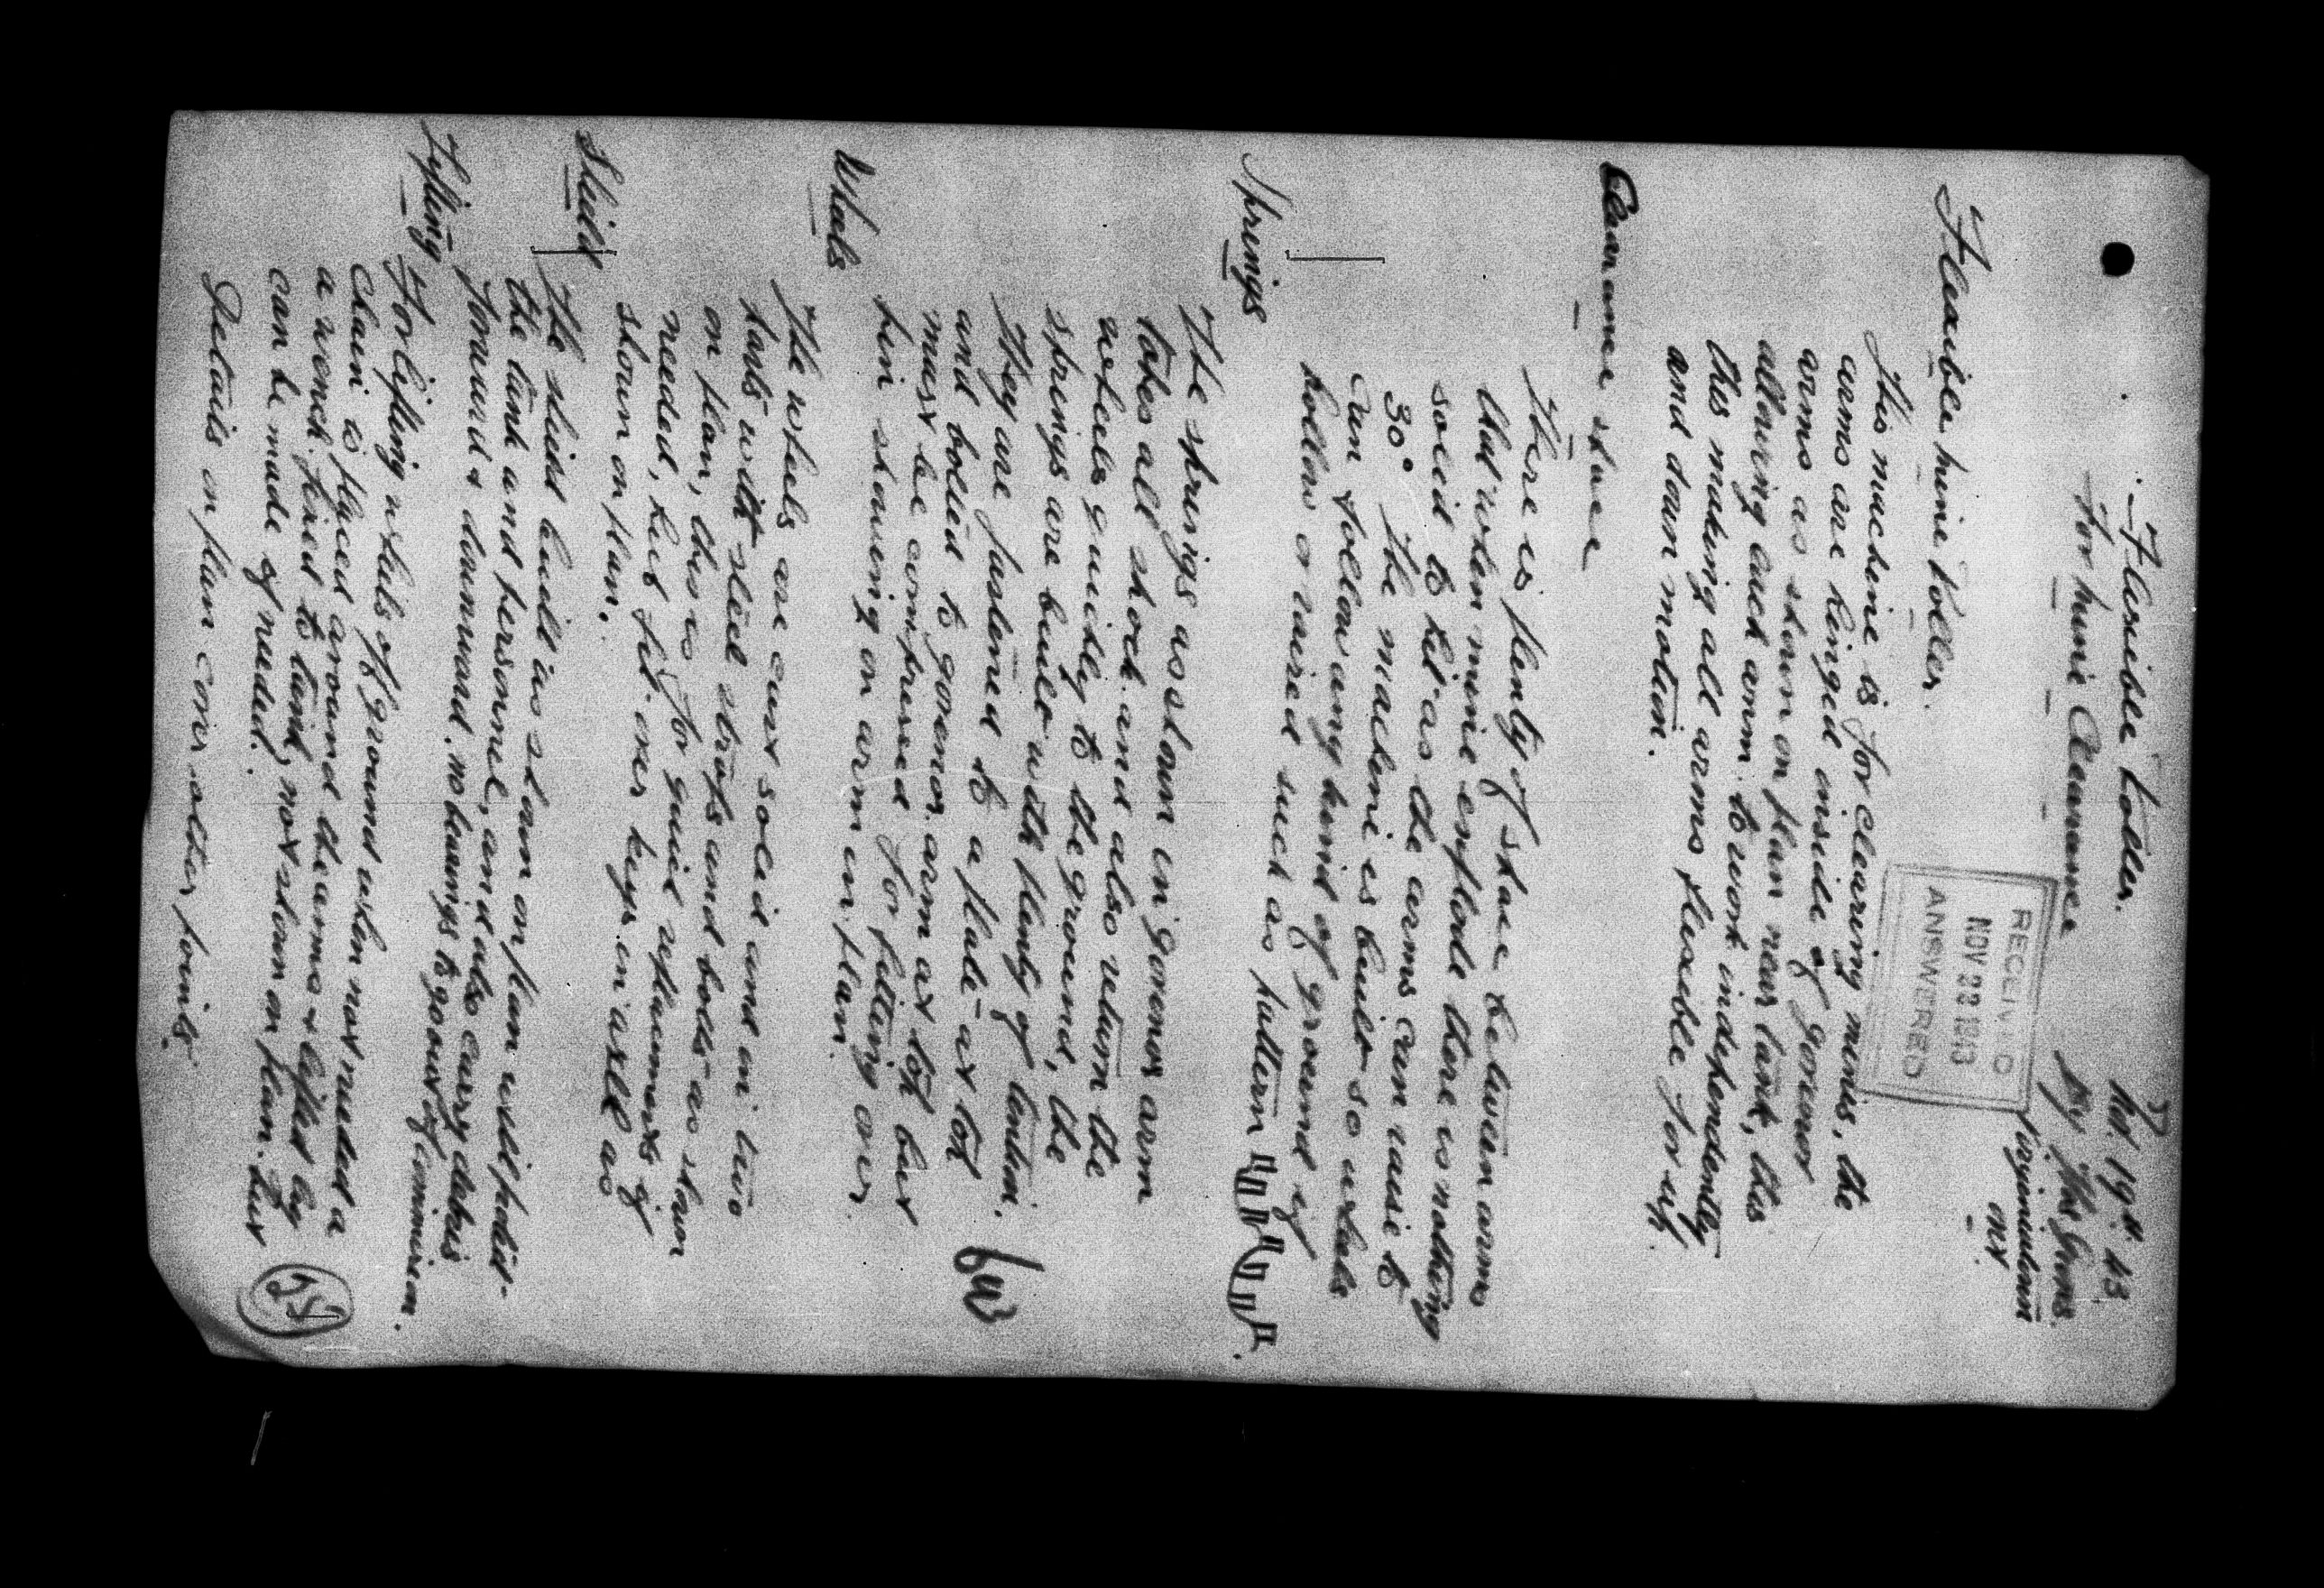 Flexible roller.
For mine Clearance
Nov. 19th. 43.
By Jhs Gunn.
Virginiatown
Ont.
RECEIVED
NOV 22 1943
ANSWERED
Flexible mine roller.
This machine is for clearing mines, the
arms are hinged inside of govenor
arms as shown on plan near tank, this
allowing each arm to work independently
this making all arms flexible for up
and down motion.
Clearance space
There is plenty of space between arms
that when mine explode there is nothing
solid to hit as the arms can raise to
30° The machine is built so wheels
can follow any kind of ground if
hollow or raised such as pattern
Springs
The springs as shown in govenor arm
takes all shock and also return the
wheels quickly to the ground, the
springs are built with plenty of tention.
They are fastened to a plate at top
and bolted to govenor arm at top but
must be compressed for fitting over
pin showing on arm in plan.
Wheels
The wheels are cast solid and in two
parts with steel straps and bolts as shown
on plan, this is for quick replacements if
needed, but fit over keys in axle as
shown on plan.
Shield
The shield built as shown on plan will protect
the tank and personnel, and also carry debris
forward & downward, no bearings to go out of commision.
Lyfting
For lifting wheels off ground when not needed a
chain is placed around the arms & lifted by
a wench fixed to tank, not shown on plan. but
can be made if needed.
Details on plan cover other points.